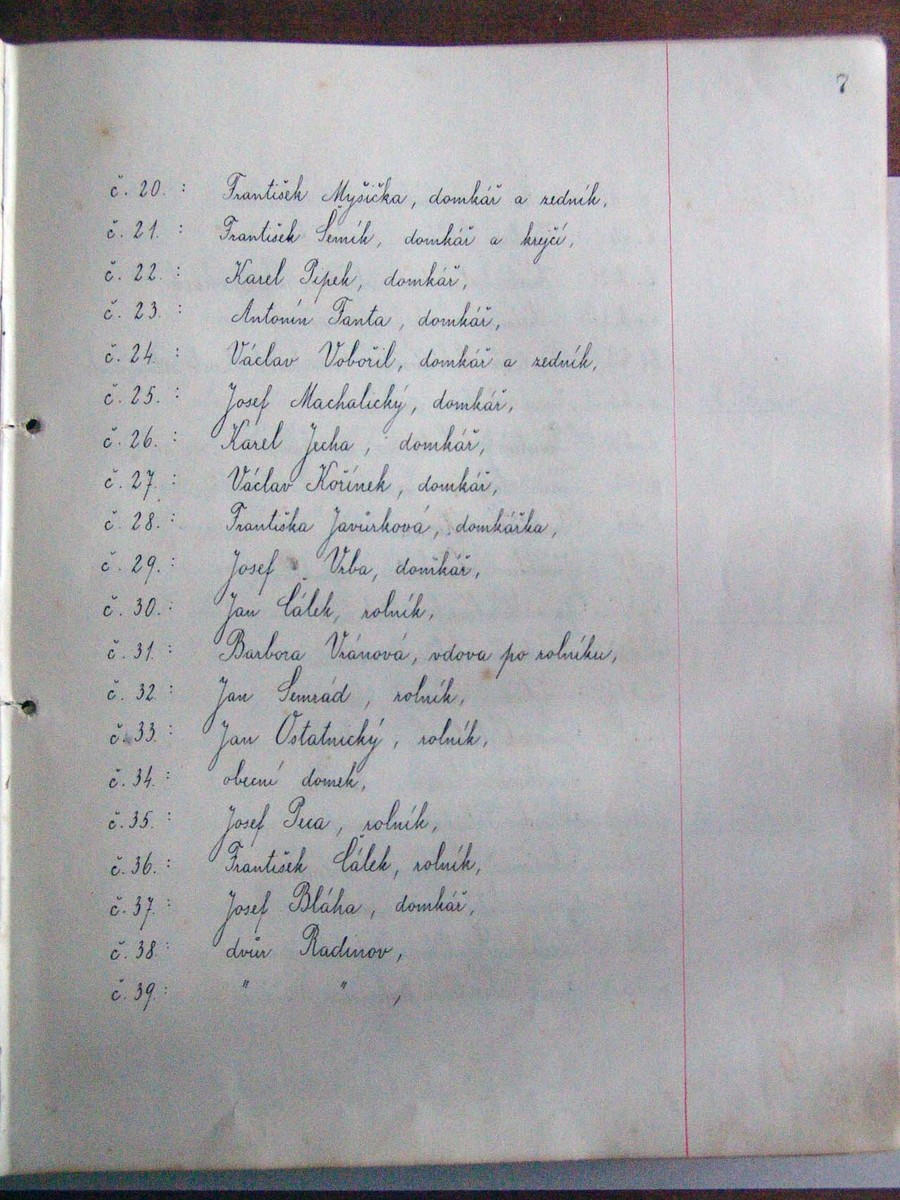 7
č. 20. : František Myšička, domkář a zedník,
č. 21. : František Šemík, domkář a krejčí,
č. 22. : Karel Pipek, domkář,
č. 23. : Antonín Fanta, domkář,
č. 24. : Václav Vobořil, domkář a zedník,
č. 25. : Josef Machalický, domkář,
č. 26. : Karel Jecha, domkář,
č. 27. : Václav Kořínek, domkář,
č. 28. : Františka Javůrková, domkářka,
č. 29. : Josef Vrba, domkář,
č. 30. : Jan Čálek, rolník,
č. 31. : Barbora Vránová, vdova po rolníku,
č. 32 : Jan Semrád, rolník,
č. 33. : Jan Ostatnický, rolník,
č. 34. : obecní domek,
č. 35. : Josef Peca, rolník,
č. 36. : František Čálek, rolník,
č. 37. : Josef Bláha, domkář,
č. 38. : dvůr Radinov,
č. 39. : " " ,